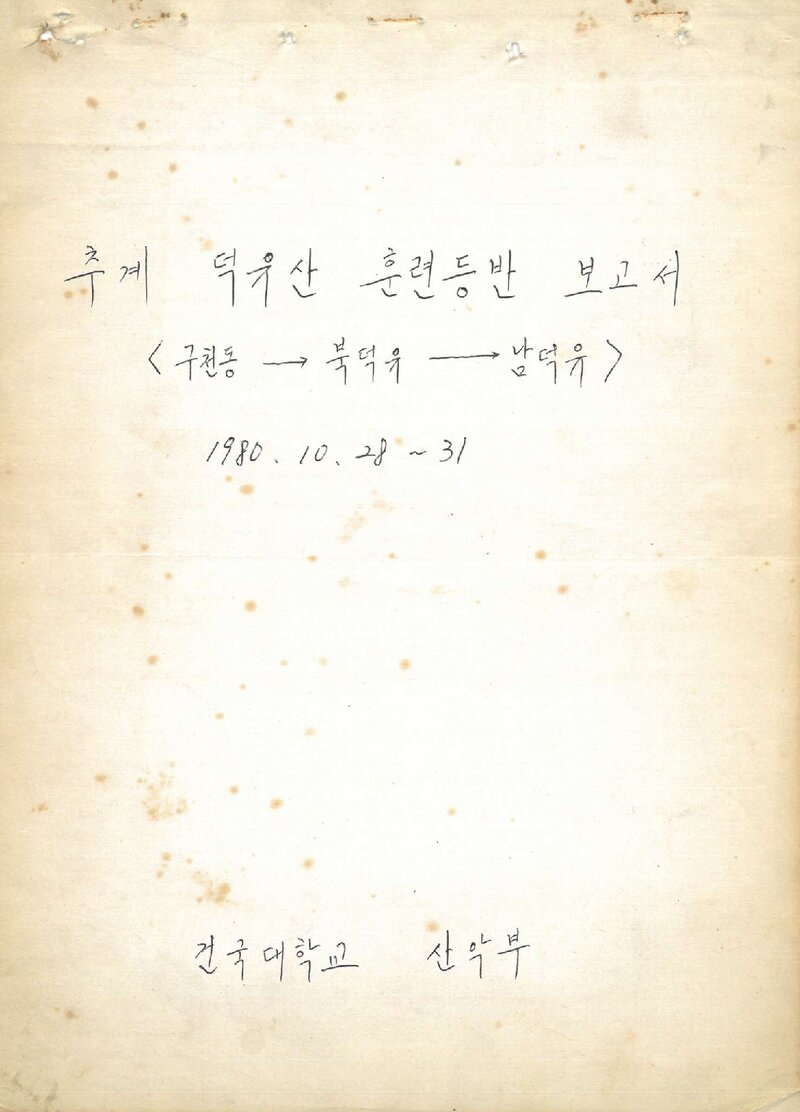 추계 덕유산 훈련등반 보고서
<구천동 → 북덕유 → 남덕유>
1980. 10. 28 ~ 31
건국대학교 산악부